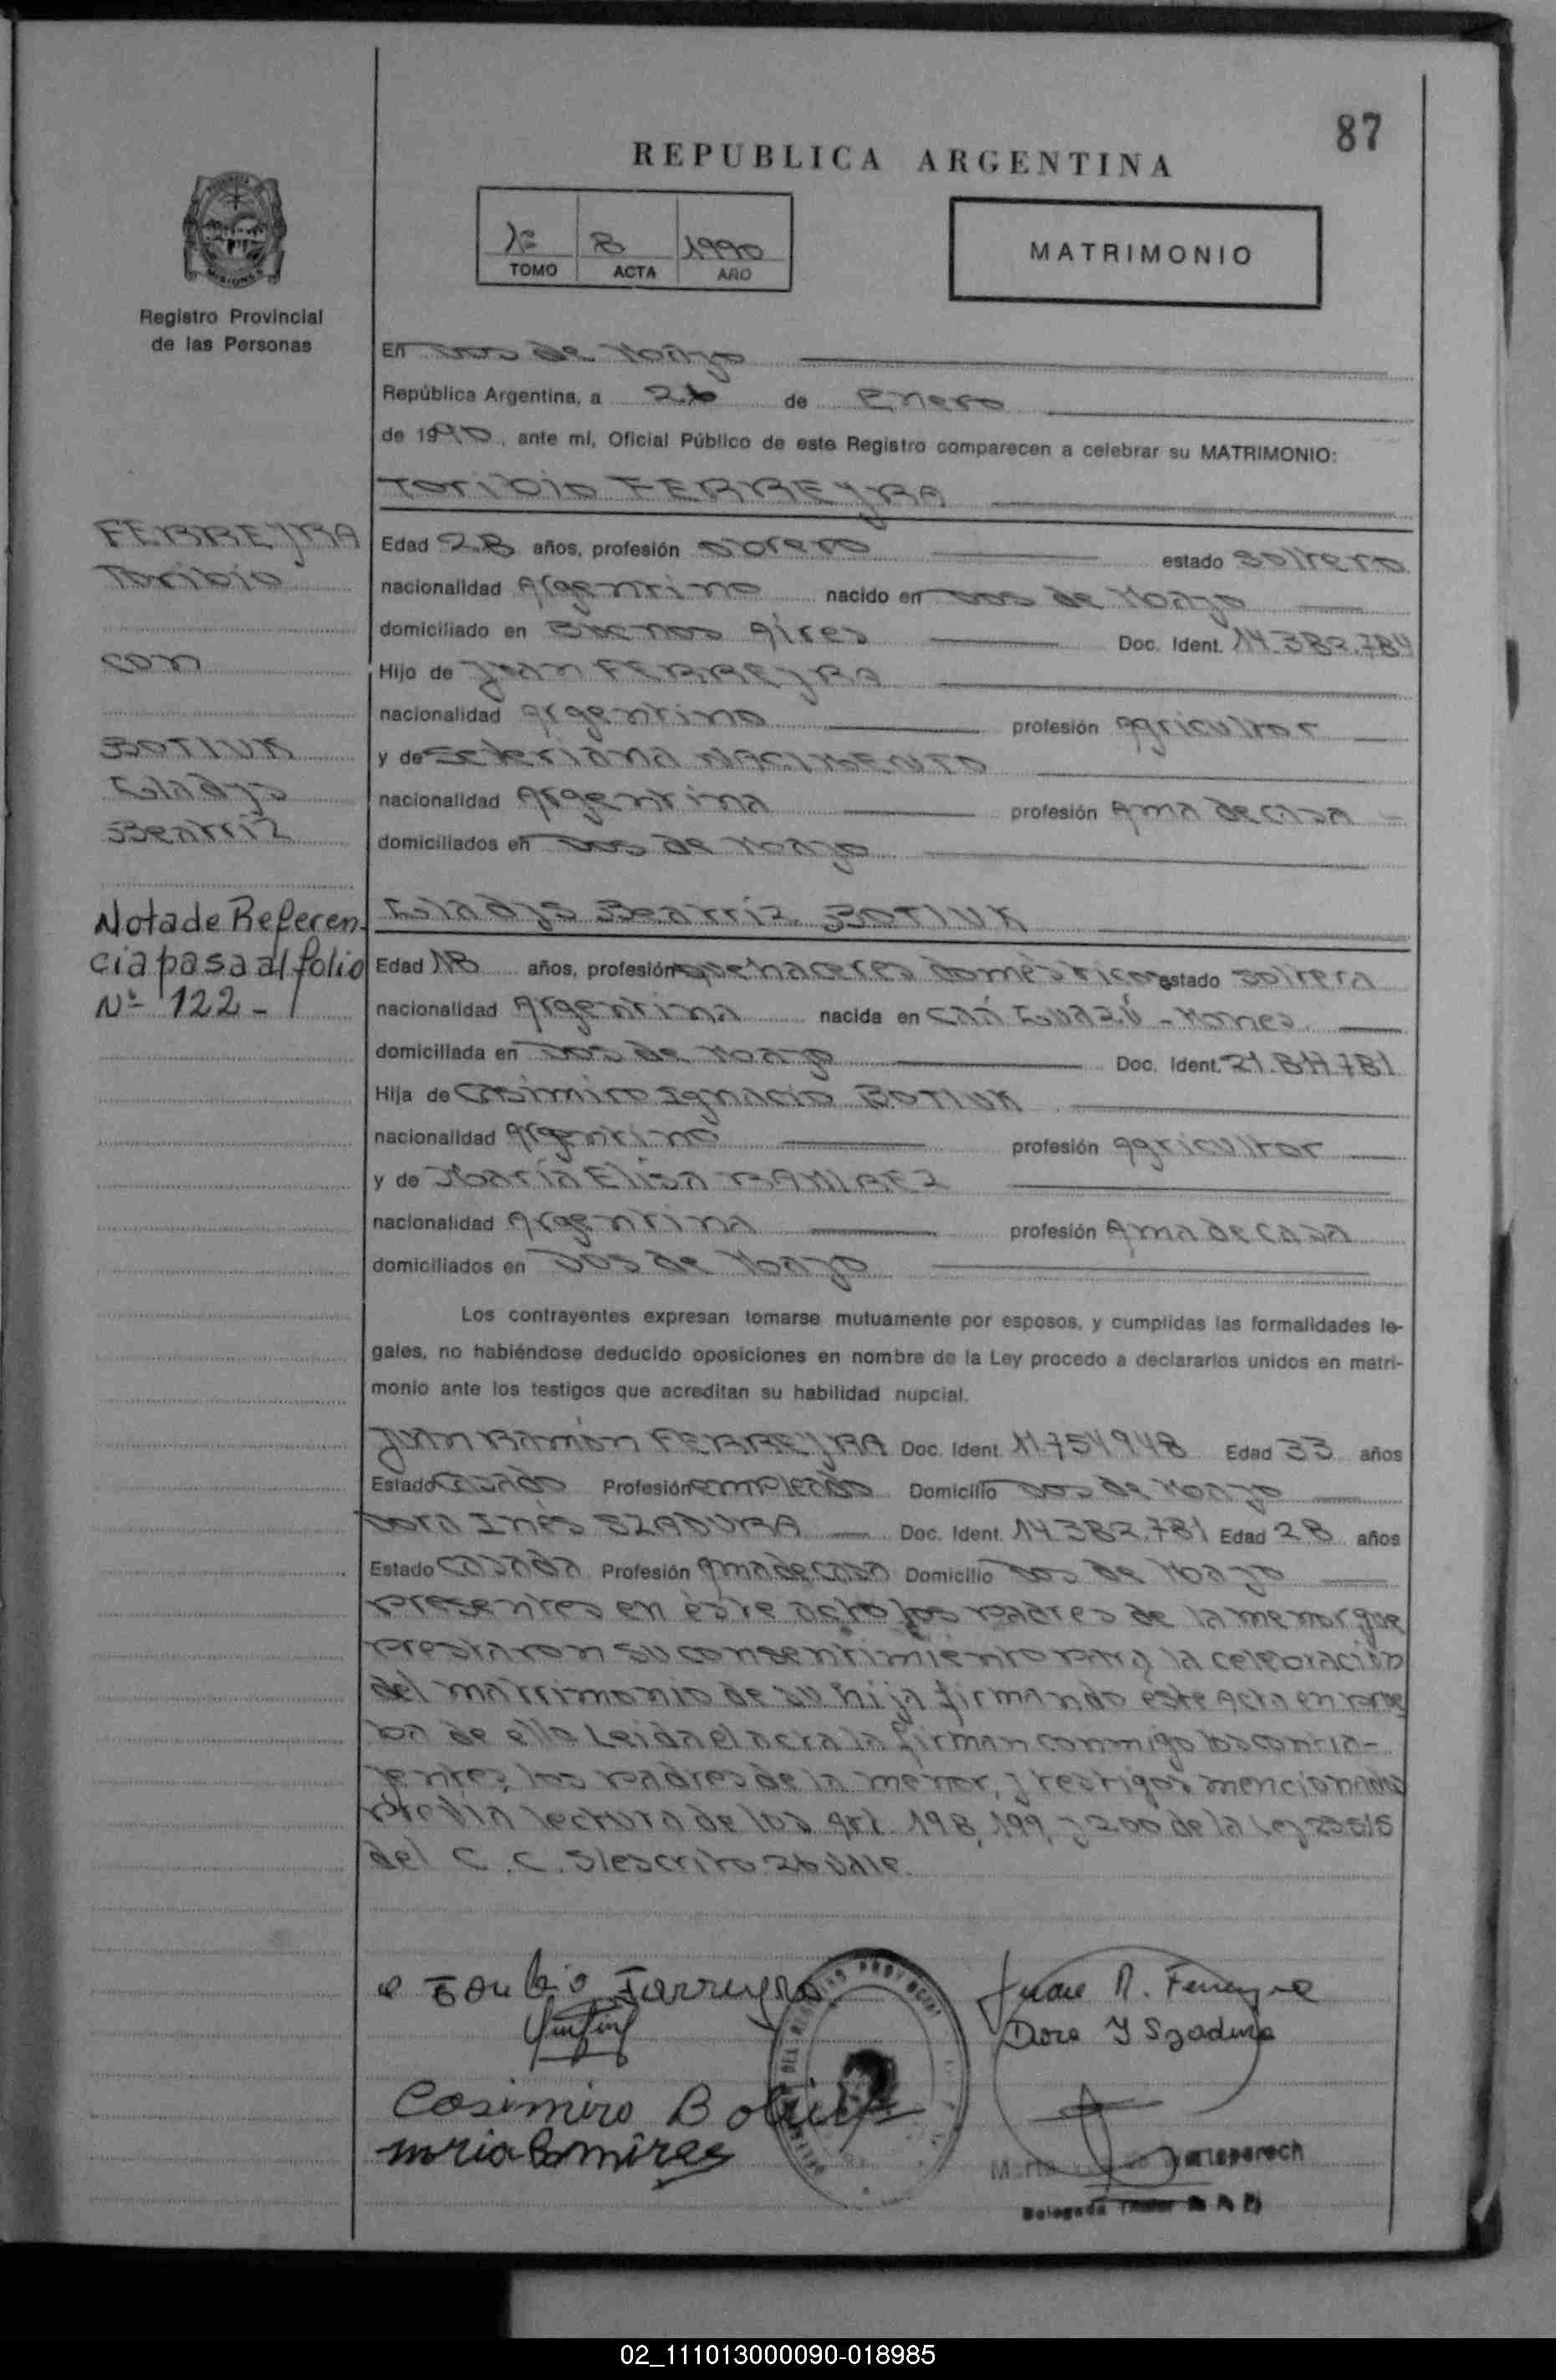 87
REPUBLICA ARGENTINA
1º 8 1990
TOMO ACTA AÑO
MATRIMONIO
Registro Provincial
de las Personas
En Dos de Mayo
República Argentina, a 26 de Enero
de 1990, ante mí, Oficial Público de este Registro comparecen a celebrar su MATRIMONIO:
Toribio FERREYRA
FERREYRA
Toribio
con
BOTIUK
Gladys
Beatriz
Nota de Referen
cia pasa al folio
Nº 122 -
Edad 28 años, profesión obrero estado soltero
nacionalidad Argentino nacido en Dos de Mayo
domiciliado en Buenos Aires Doc. Ident. 14.382.784
Hijo de Juan FERREYRA
nacionalidad Argentino profesión Agricultor
y de NACIMENTO
nacionalidad Argentina profesión Ama de casa
domiciliados en Dos de Mayo
Gladys Beatriz BOTIUK
Edad 18 años, profesión quehaceres domésticos estado soltera
nacionalidad Argentina nacida en CAÁ GUAZÚ - Mones
domiciliada en Dos de Mayo Doc. Ident. 21.817.781
Hija de Casimiro Ignacio BOTIUK
nacionalidad Argentino profesión agricultor
y de María Elisa RAMIREZ
nacionalidad Argentina profesión Ama de casa
domiciliados en Dos de Mayo
Los contrayentes expresan tomarse mutuamente por esposos, y cumplidas las formalidades le-
gales, no habiéndose deducido oposiciones en nombre de la Ley procedo a declararlos unidos en matri-
monio ante los testigos que acreditan su habilidad nupcial.
Juan Ramón FERREYRA Doc. Ident. 11.754948 Edad 33 años
Estado casado Profesión empleado Domicilio Dos de Mayo
Dora Inés SZADURA Doc. Ident. 14.382.781 Edad 28 años
Estado casada Profesión Ama de casa Domicilio Dos de Mayo
presentes en éste acto los padres de la menor que
prestaron su consentimiento para la celebración
del matrimonio de su hija firmando éste Acta en prue
ba de ello Leida el acta la firman conmigo los contra-
yentes, los padres de la menor, y testigos mencionados
previa lectura de los Art. 198, 199, y 200 de la Ley 23515
del C.C. S/escrito 26 vale.
Toribio Farreyra
Juan R. Ferreyra
Dora Y Szadura
Casimiro Botiuk
maria Ramires
Delegada Titular
02_111013000090-018985